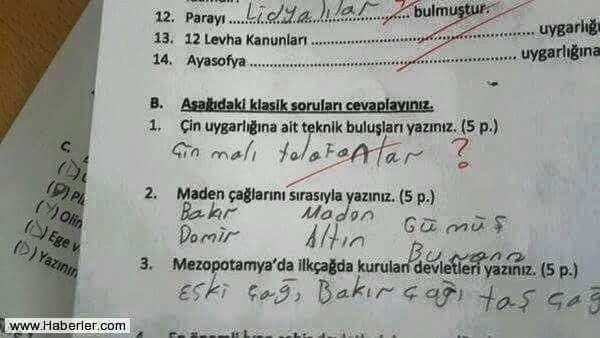 12. Parayı Lidyalılar bulmuştur.
13. 12 Levha Kanunları ........ uygarlığı
14. Ayasofya ........ uygarlığına
B. Aşağıdaki klasik soruları cevaplayınız.
1. Çin uygarlığına ait teknik buluşları yazınız. (5 p.)
Çin malı telefonlar ?
2. Maden çağlarını sırasıyla yazınız. (5 p.)
Bakır Madon Gümüş
Domir Altın
3. Mezopotamya'da ilkçağda kurulan devletleri yazınız. (5 p.)
Eski çağ, Bakır çağı taş çağ
C.
(D) Pl
(Y) Olin
Ege v
(D) Yazının
www.Haberler.com